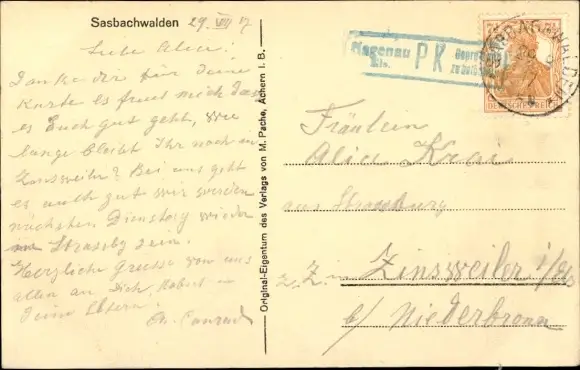 Sasbachwalden 29. VII 17
Liebe Alice!
Danke dir für deine
Karte es freut mich das
es Euch gut geht, wie
lange bleibt Ihr noch in
Zinsweiler? Bei uns geht
es auch gut wir werden
nächsten Dienstag wieder
Strassbg sein.
Herzliche Grüsse von uns
allen an Dich, Robert u
deine Eltern.
Conrad
Original-Eigentum des Verlags von M. Pache, Achern i. B.
Hagenau
Els.
P K
Geprüft und
zu befördern
SASBACHWALDEN
DEUTSCHES REICH
Fräulein
Alice
aus Strassburg
z. Z. in Zinsweiler i/Els
b/ Niederbronn